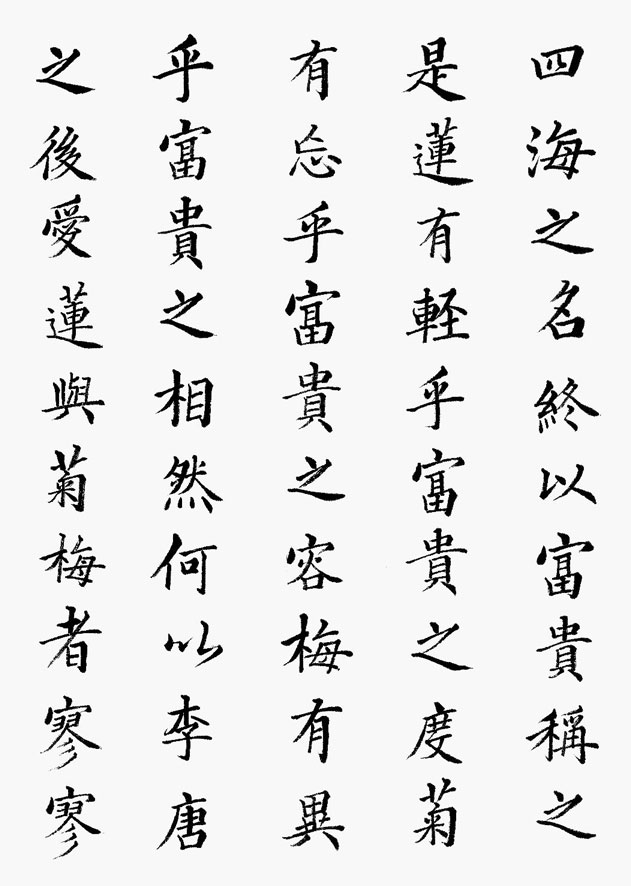 四海之名終以富貴稱之
是蓮有軽乎富貴之度菊
有忘乎富貴之容梅有異
乎富貴之相然何以李唐
之後愛蓮與菊梅者寥寥